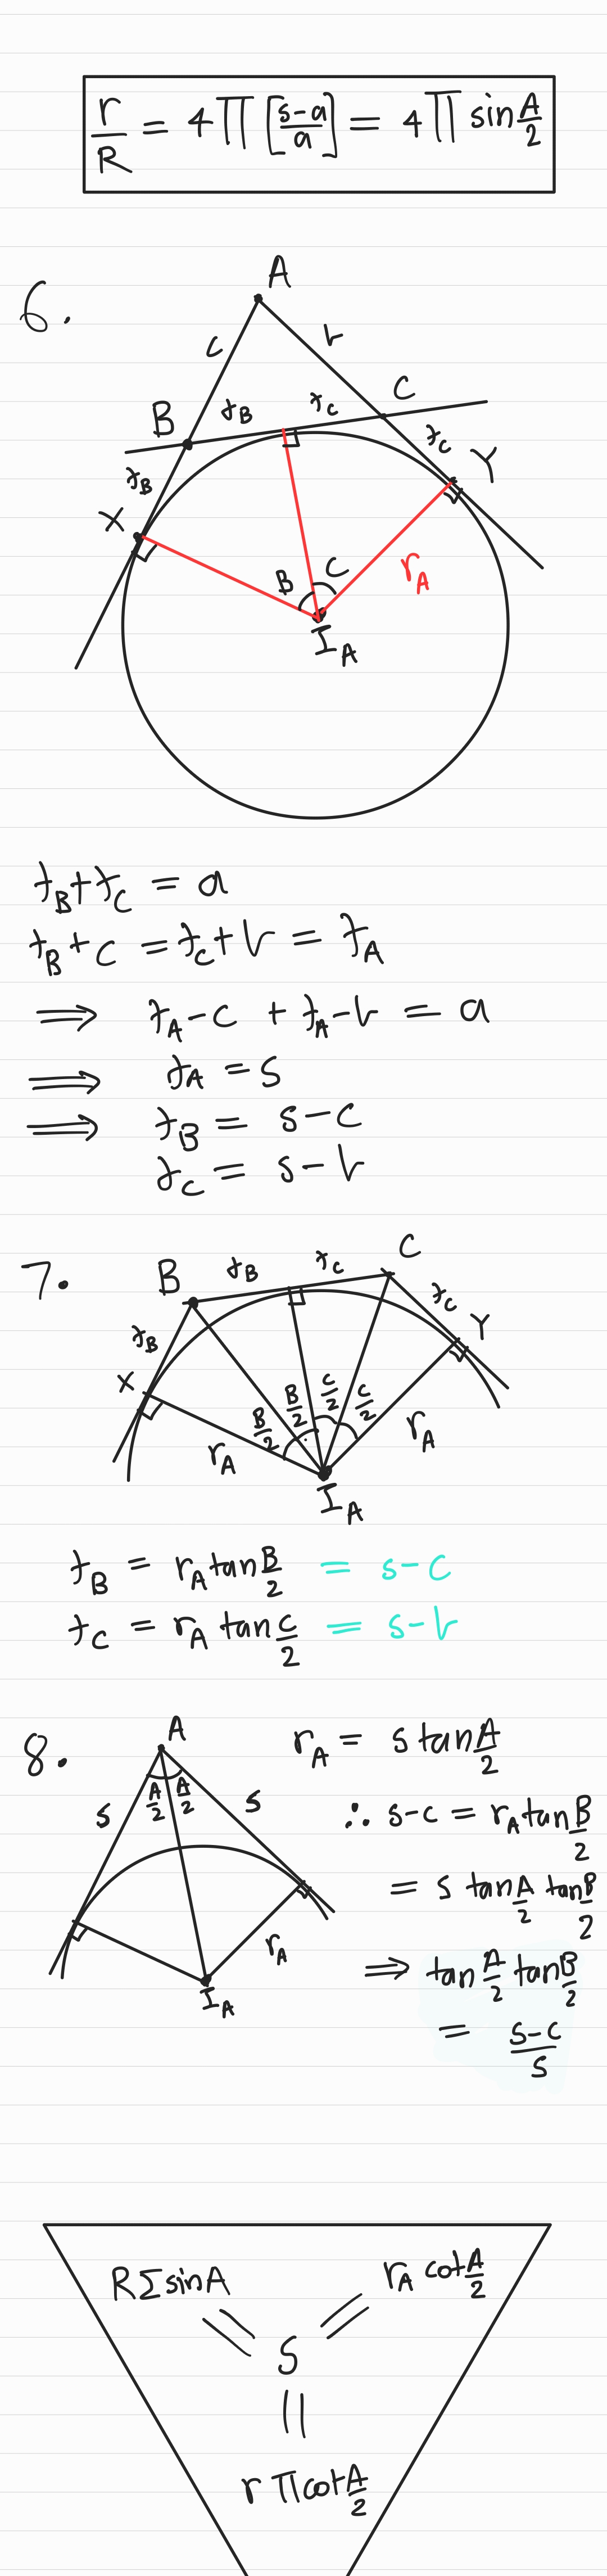 r/R = 4∏[(s-a)/a] = 4∏ sin A/2
6.
A
c
b
B
t_B
t_C
C
t_B
t_C
X
Y
B
C
r_A
I_A
t_B + t_C = a
t_B + c = t_C + b = t_A
⟹ t_A - c + t_A - b = a
⟹ t_A = s
⟹ t_B = s - c
t_C = s - b
7.
B
t_B
t_C
C
t_B
t_C
X
Y
B/2
B/2
C/2
C/2
r_A
r_A
I_A
t_B = r_A tan B/2 = s - c
t_C = r_A tan C/2 = s - b
8.
A
A/2
A/2
s
s
r_A
I_A
r_A = s tan A/2
∴ s - c = r_A tan B/2
= s tan A/2 tan B/2
⟹ tan A/2 tan B/2
= (s-c)/s
RΣsinA
r_A cot A/2
=
=
S
=
r ∏cot A/2